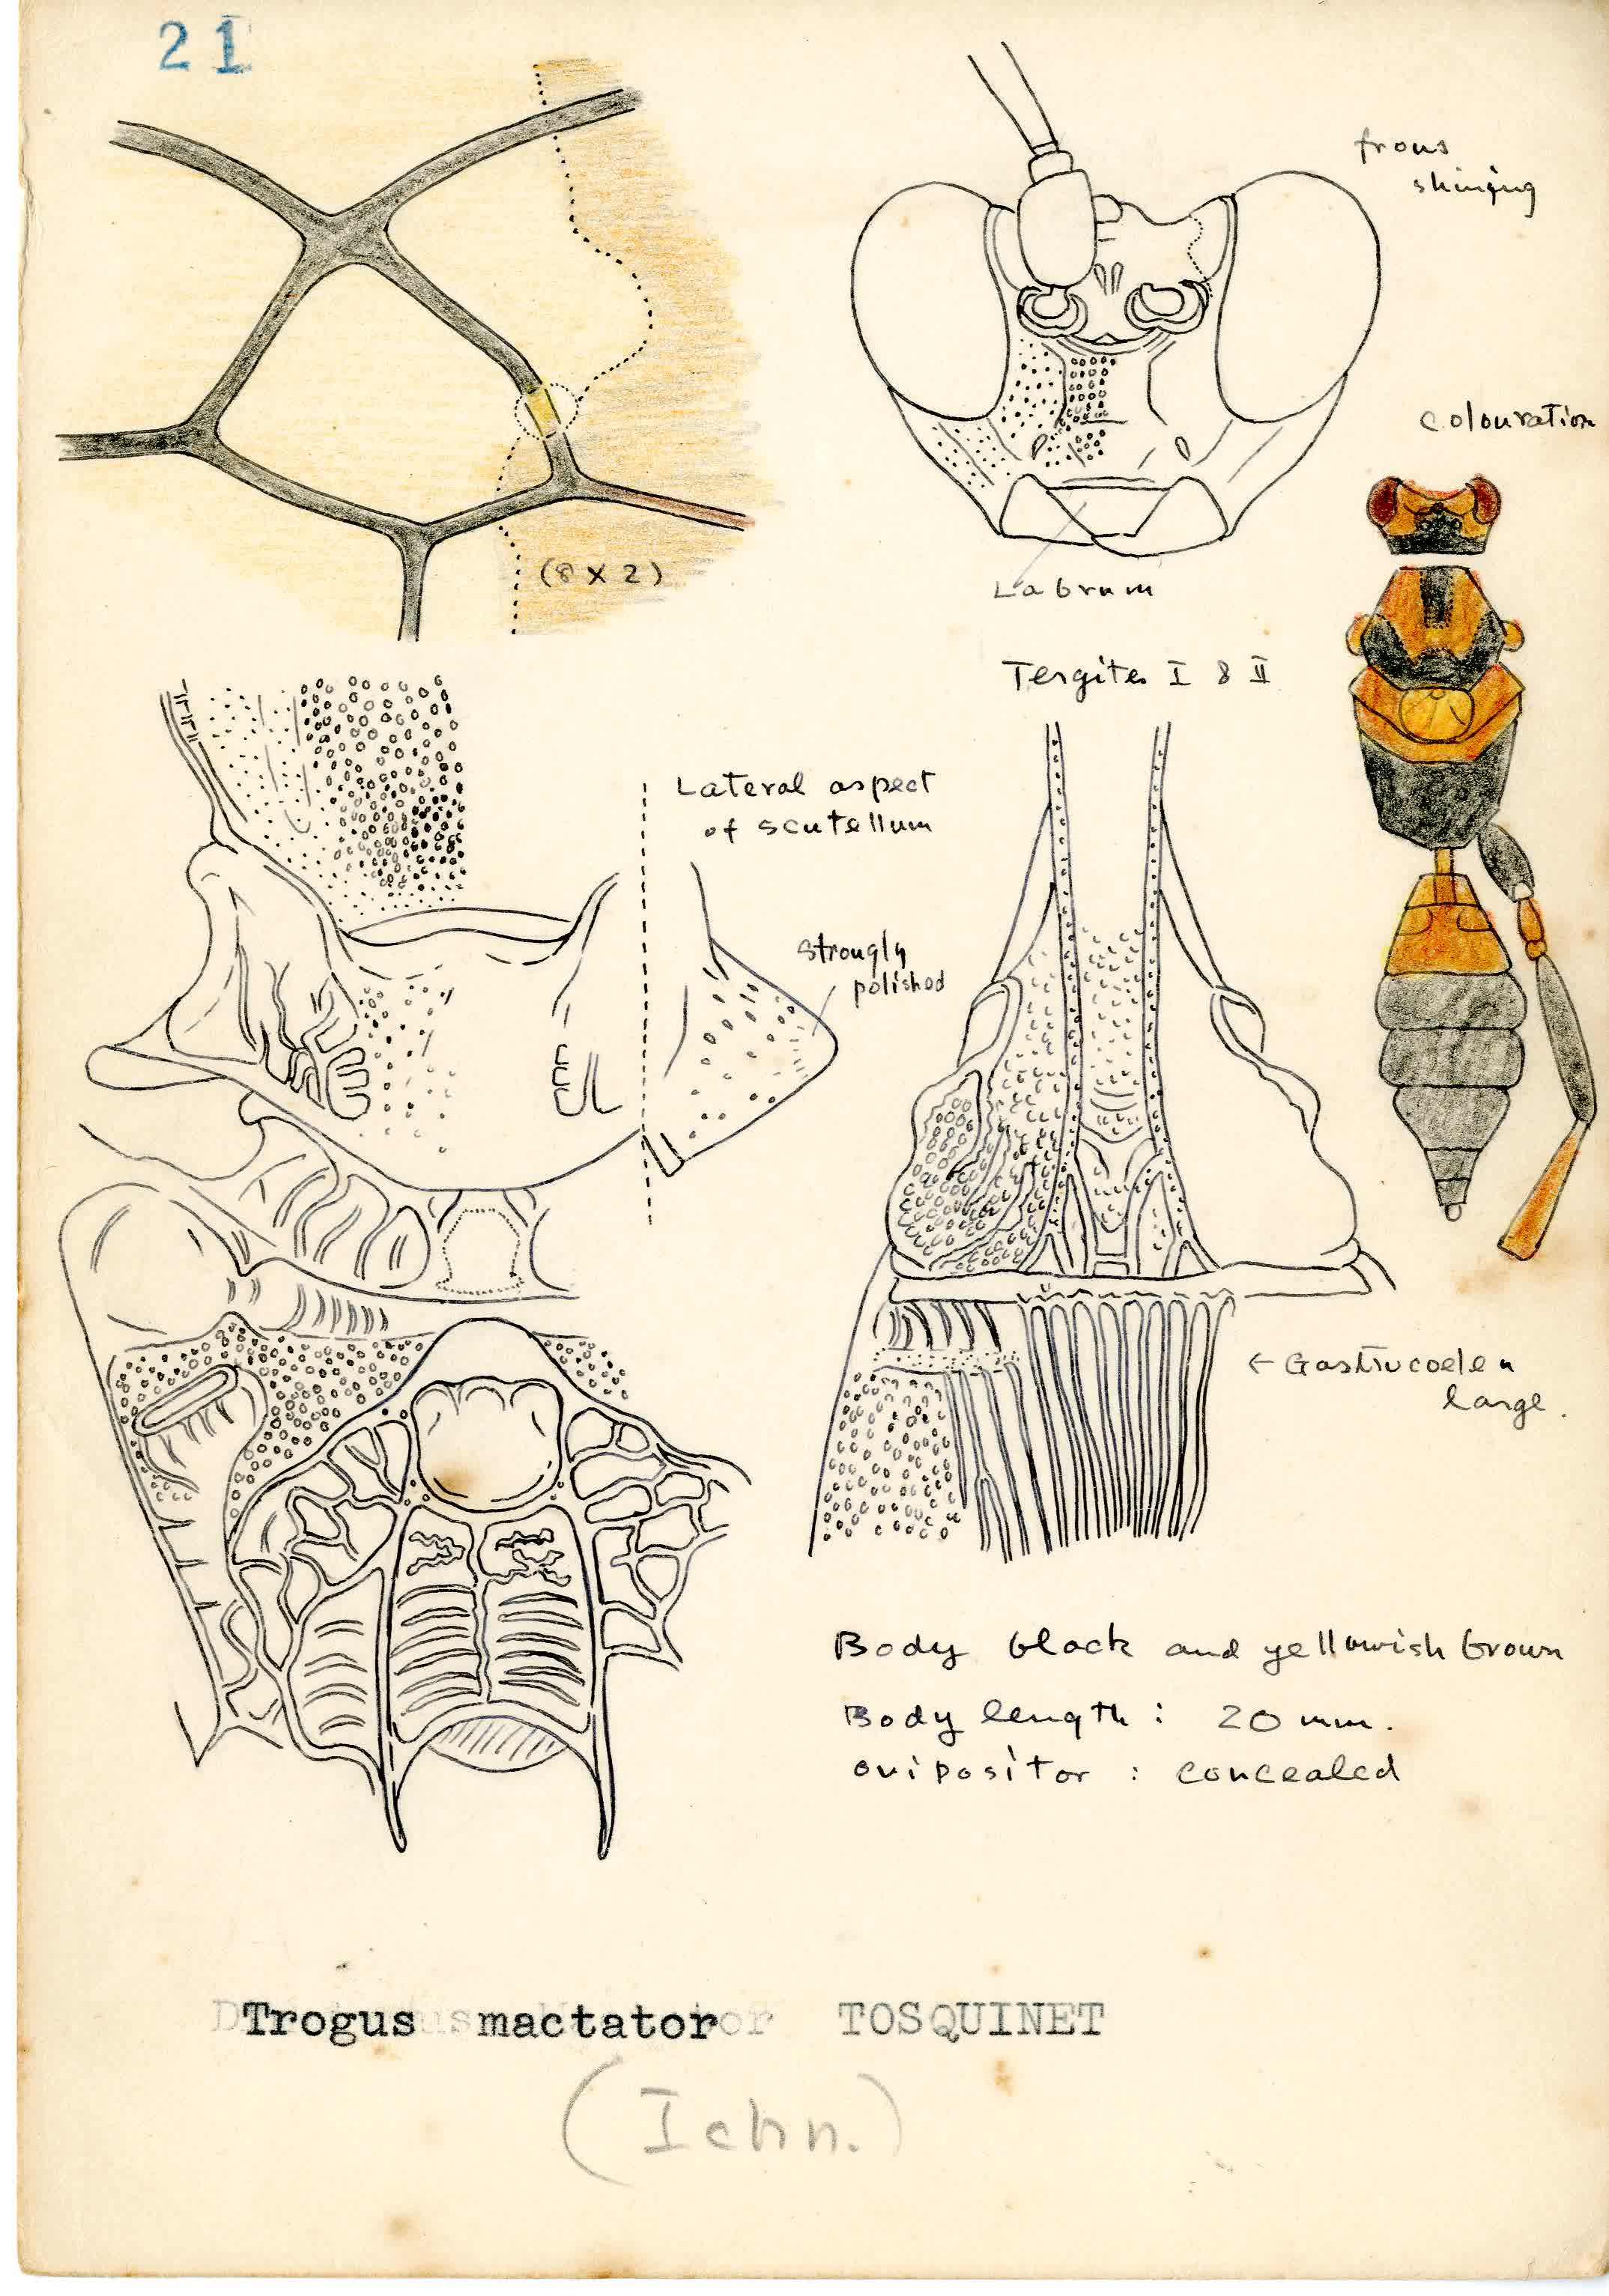 21
frons
shining
colouration
(8 x 2)
Labrum
Tergites I & II
Lateral aspect
of scutellum
strongly
polished
← Gastrocoelen
large.
Body black and yellowish brown
Body length : 20 mm.
ovipositor : concealed
Trogus mactator TOSQUINET
(Ichn.)